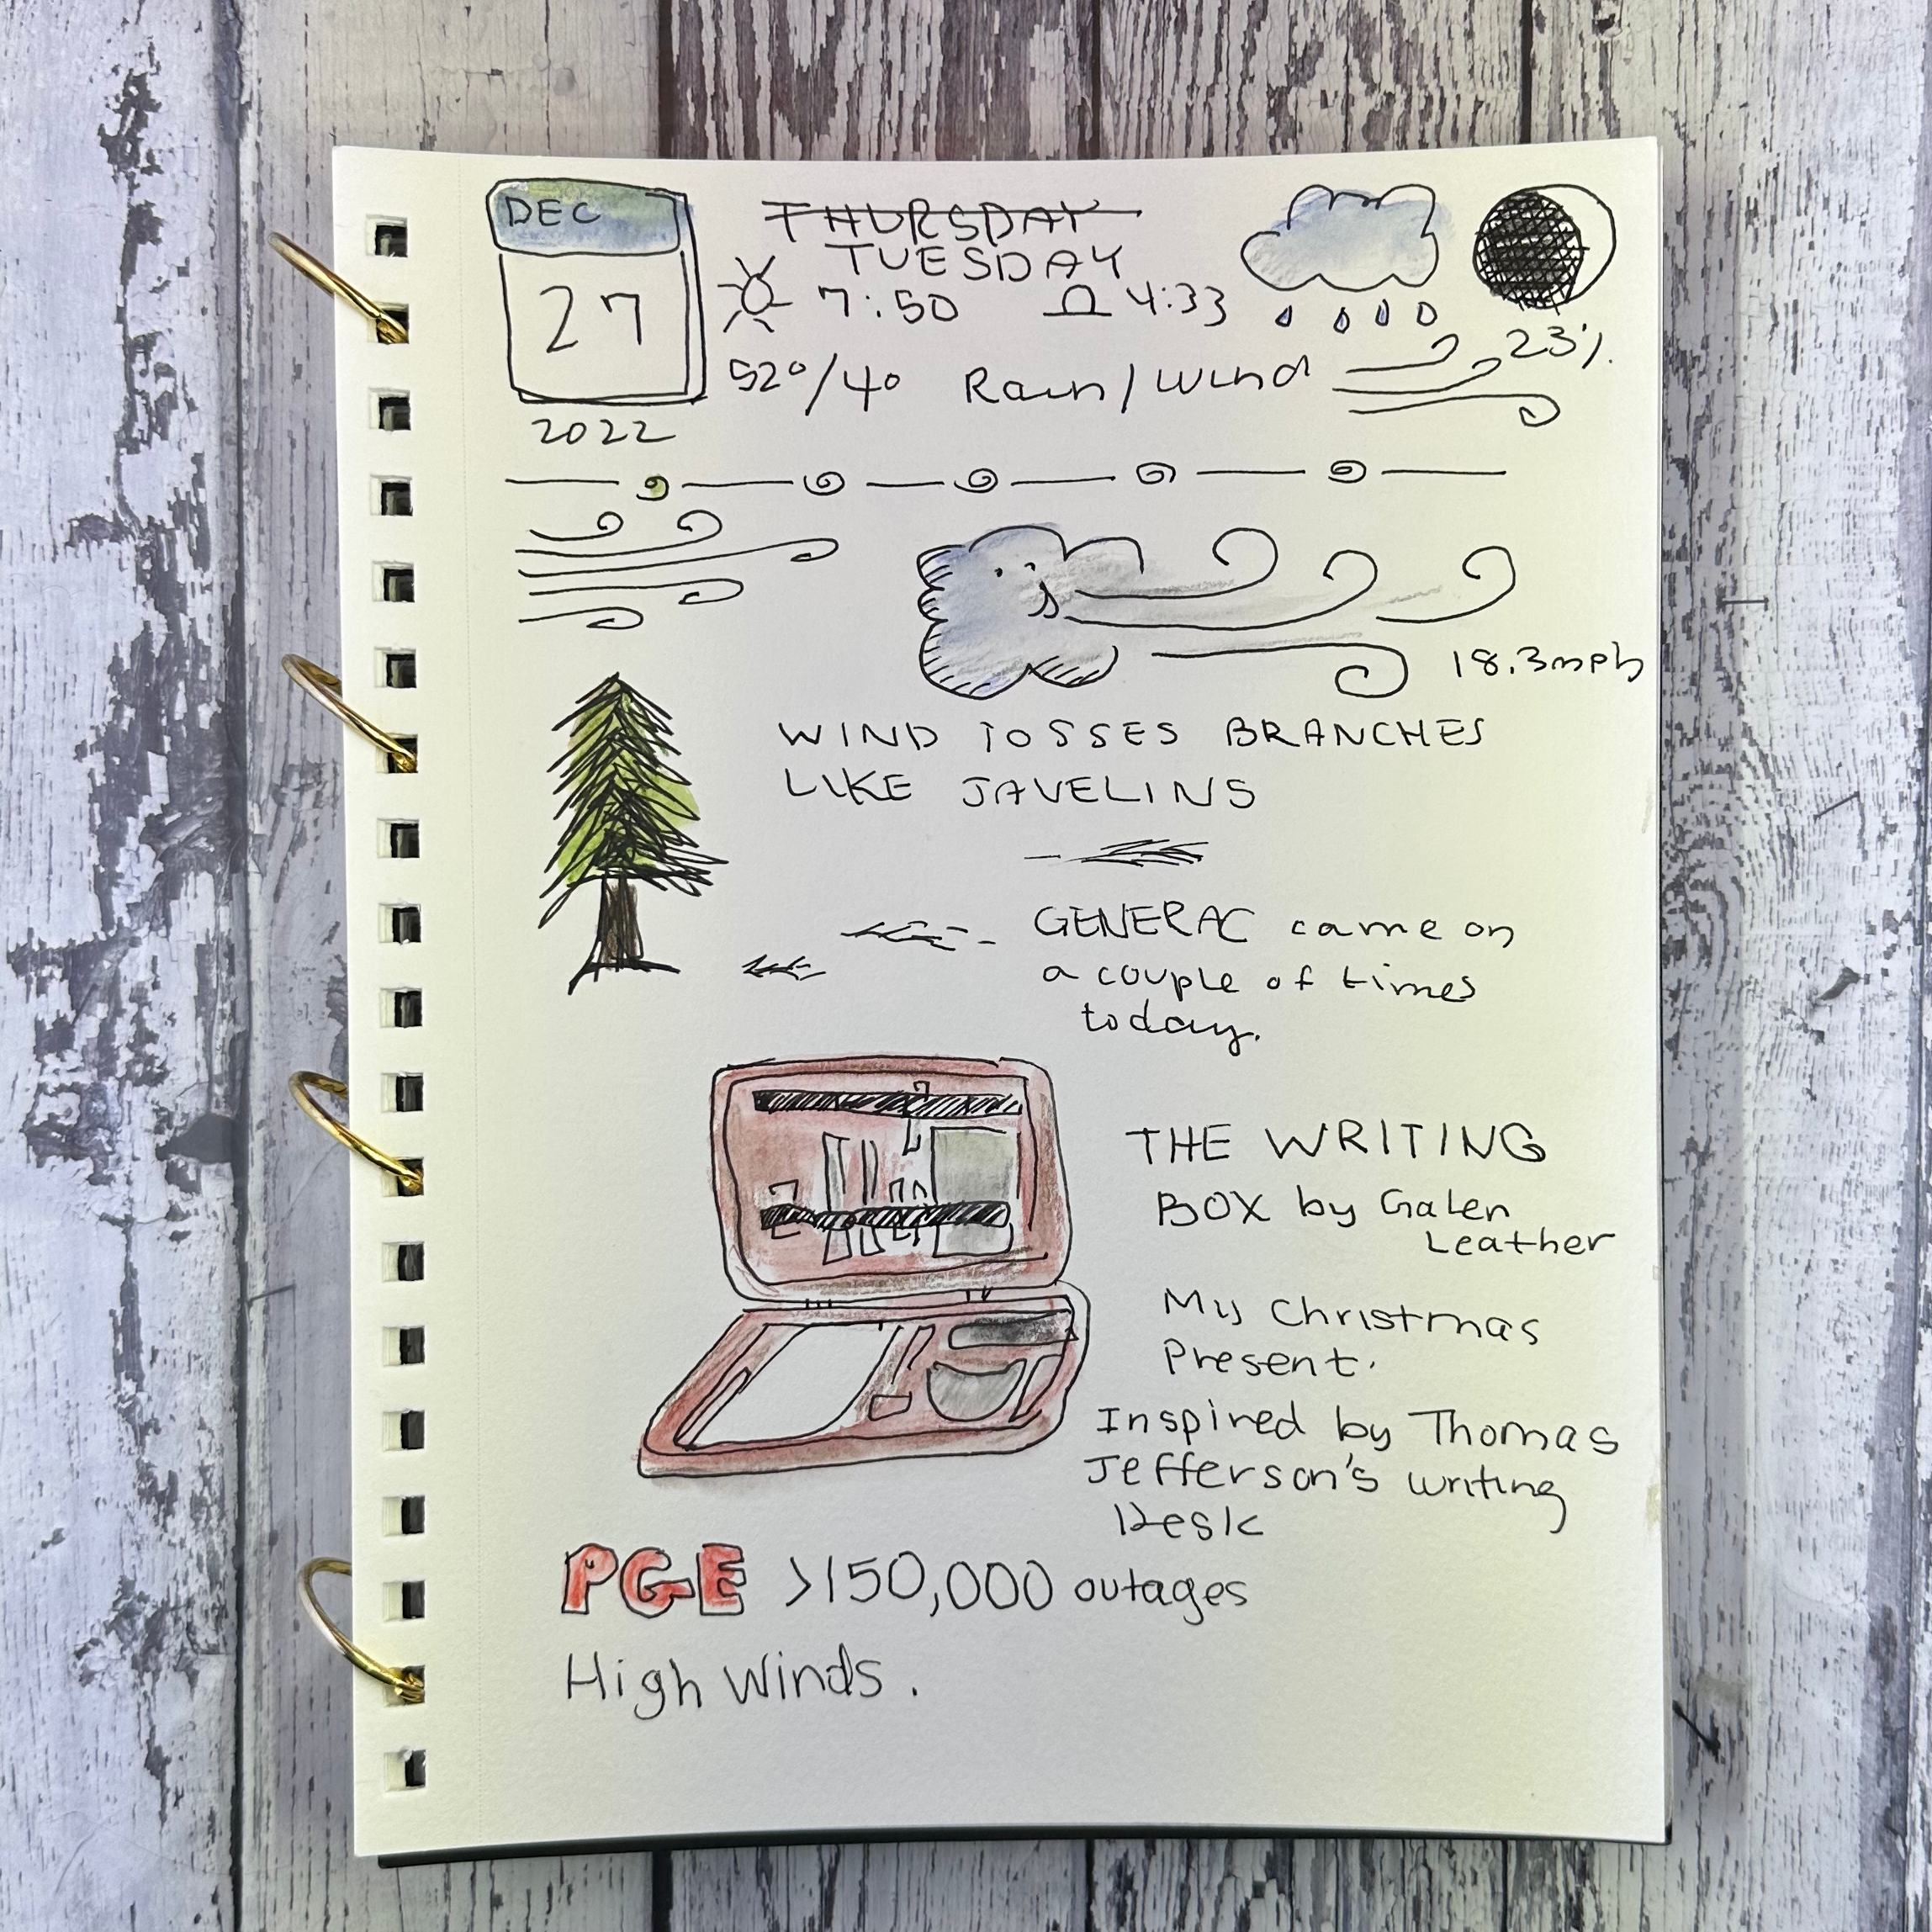 DEC
27
2022
THURSDAY
TUESDAY
7:50 4:33
52°/40 Rain/Wind
23%
18.3mph
WIND TOSSES BRANCHES
LIKE JAVELINS
GENERAC came on
a couple of times
today.
THE WRITING
BOX by Galen
Leather
My Christmas
Present.
Inspired by Thomas
Jefferson's writing
Desk
PGE >150,000 outages
High Winds.